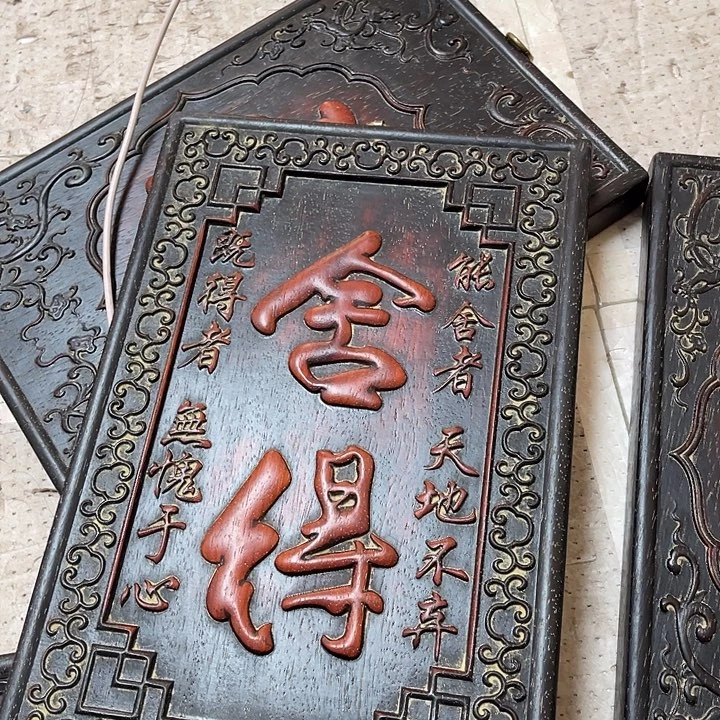 能舍者 天地不弃
舍得
既得者 無愧于心